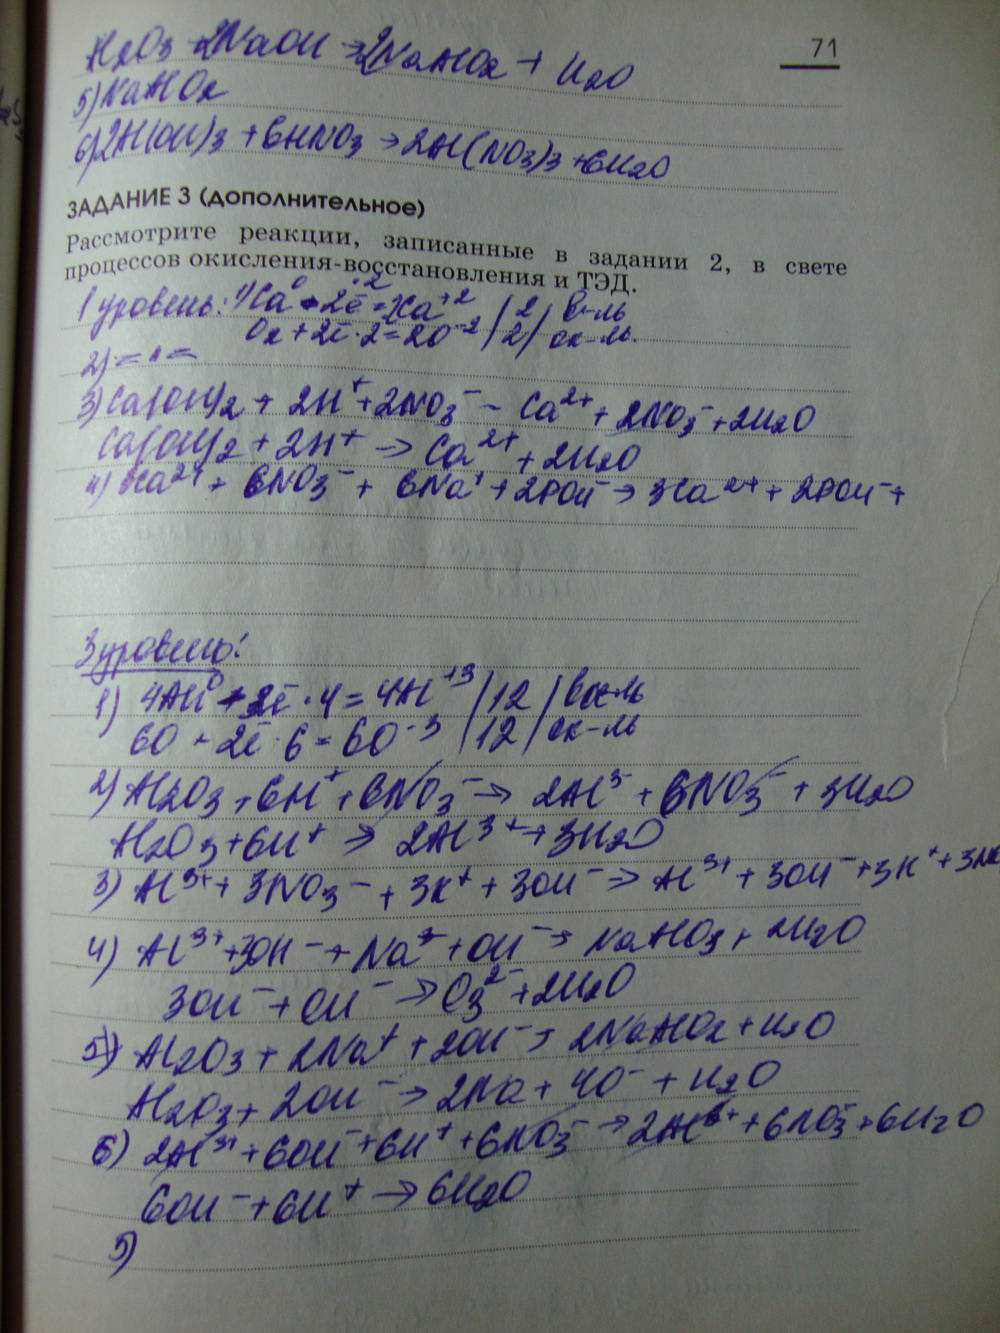 71
Al2O3 + 2NaOH → 2NaAlO2 + H2O
5) NaAlO2
6) 2Al(OH)3 + 6HNO3 → 2Al(NO3)3 + 6H2O
ЗАДАНИЕ 3 (дополнительное)
Рассмотрите реакции, записанные в задании 2, в свете
процессов окисления-восстановления и ТЭД.
1 уровень: 1) Ca⁰ - 2ē·2 = 2Ca⁺² | 2 | в-ль
O2 + 2ē·2 = 2O⁻² | 2 | ок-ль.
2) = " =
3) Ca(OH)2 + 2H⁺ + 2NO3⁻ – Ca²⁺ + 2NO3⁻ + 2H2O
Ca(OH)2 + 2H⁺ → Ca²⁺ + 2H2O
4) 3Ca²⁺ + 6NO3⁻ + 6Na⁺ + 2POH⁻ → 3Ca²⁺ + 2POH⁻ +
3 уровень:
1) 4Al⁰ - 2ē·4 = 4Al⁺³ | 12 | вос-ль
6O + 2ē·6 = 6O⁻³ | 12 | ок-ль
2) Al2O3 + 6H⁺ + 6NO3⁻ → 2Al³⁻ + 6NO3⁻ + 3H2O
Al2O3 + 6H⁺ → 2Al³⁺ + 3H2O
3) Al³⁺ + 3NO3⁻ + 3K⁺ + 3OH⁻ → Al³⁺ + 3OH⁻ + 3K⁺ + 3NO
4) Al³⁺ + 3OH⁻ + Na⁺ + OH⁻ → NaAlO3 + 2H2O
3OH⁻ + OH⁻ → O3²⁻ + 2H2O
5) Al2O3 + 2Na⁺ + 2OH⁻ → 2NaAlO2 + H2O
Al2O3 + 2OH⁻ → 2Na + 4O⁻ + H2O
6) 2Al³⁺ + 6OH⁻ + 6H⁺ + 6NO3⁻ → 2Al³⁺ + 6NO3⁻ + 6H2O
6OH⁻ + 6H⁺ → 6H2O
5)